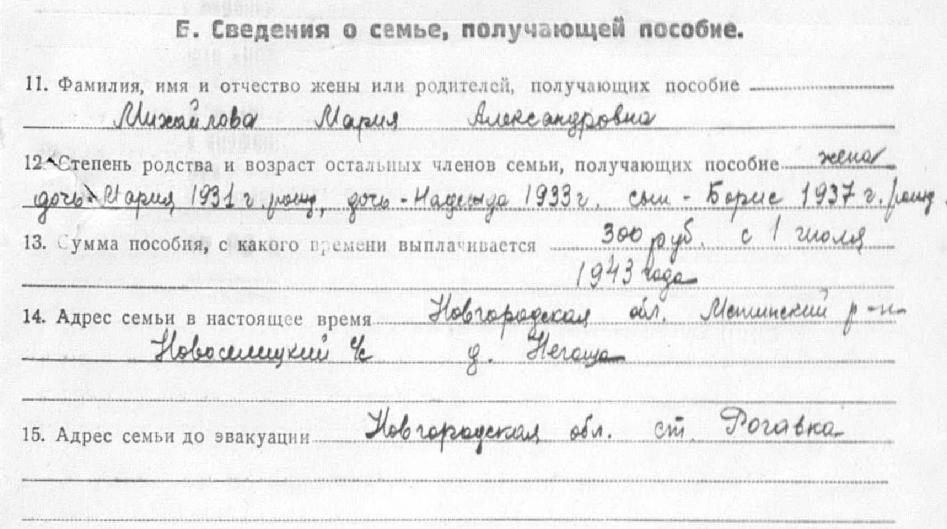 Б. Сведения о семье, получающей пособие.
11. Фамилия, имя и отчество жены или родителей, получающих пособие
Михайлова Мария Александровна
12. Степень родства и возраст остальных членов семьи, получающих пособие жена
дочь - Мария 1931 г. рожд, дочь - Надежда 1933 г. сын - Борис 1937 г. рожд.
13. Сумма пособия, с какого времени выплачивается 300 руб. с 1 июля
1943 года
14. Адрес семьи в настоящее время Новгородская обл. Мстинский р-н
Новоселицкий с/с д. Негоща
15. Адрес семьи до эвакуации Новгородская обл. ст. Рогавка